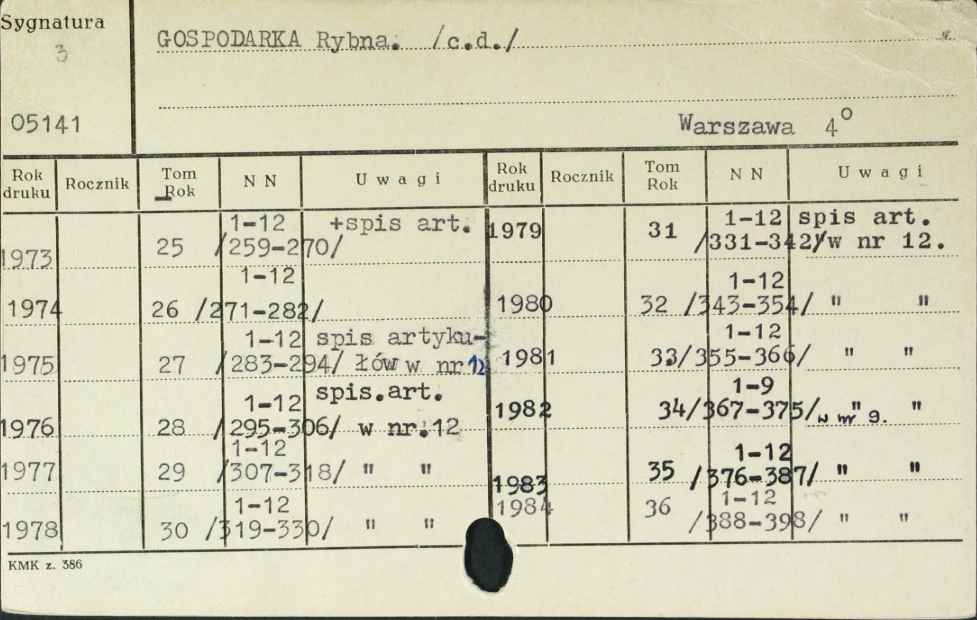 Sygnatura
3
05141
GOSPODARKA Rybna. /c.d./
Warszawa 4°
Rok druku Rocznik Tom Rok N N Uwagi Rok druku Rocznik Tom Rok N N Uwagi
1973 25 1-12 /259-270/ +spis art.
1974 26 1-12 /271-282/
1975 27 1-12 /283-294/ spis artyku-łów w nr 12
1976 28 1-12 /295-306/ spis.art. w nr.12
1977 29 1-12 /307-318/ " "
1978 30 1-12 /319-330/ " "
1979 31 1-12 /331-342/ spis art. w nr 12.
1980 32 1-12 /343-354/ " "
1981 33 1-12 /355-366/ " "
1982 34 1-9 /367-375/ " " w nr 9.
1983 35 1-12 /376-387/ " "
1984 36 1-12 /388-398/ " "
KMK z. 386